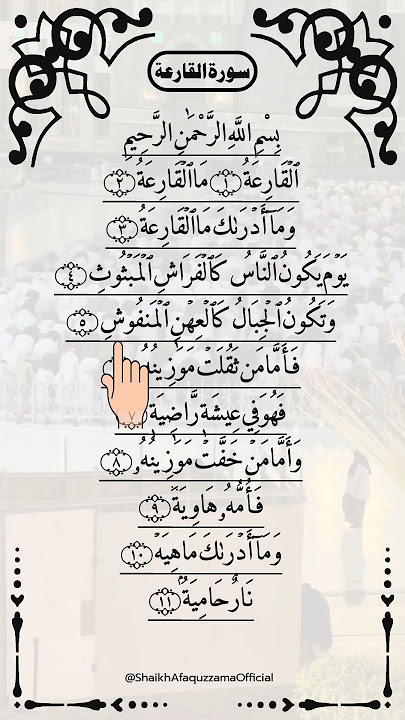 سورة القارعة
بِسْمِ اللَّهِ الرَّحْمَٰنِ الرَّحِيمِ
ٱلْقَارِعَةُ ١ مَا ٱلْقَارِعَةُ ٢
وَمَآ أَدْرَىٰكَ مَا ٱلْقَارِعَةُ ٣
يَوْمَ يَكُونُ ٱلنَّاسُ كَٱلْفَرَاشِ ٱلْمَبْثُوثِ ٤
وَتَكُونُ ٱلْجِبَالُ كَٱلْعِهْنِ ٱلْمَنفُوشِ ٥
فَأَمَّا مَن ثَقُلَتْ مَوَٰزِينُهُ
فَهُوَ فِي عِيشَةٍ رَّاضِيَةٍ ٧
وَأَمَّا مَنْ خَفَّتْ مَوَٰزِينُهُۥ ٨
فَأُمُّهُۥ هَاوِيَةٌ ٩
وَمَآ أَدْرَىٰكَ مَا هِيَهْ ١٠
نَارٌ حَامِيَةٌۢ ١١
@ShaikhAfaquzzamaOfficial